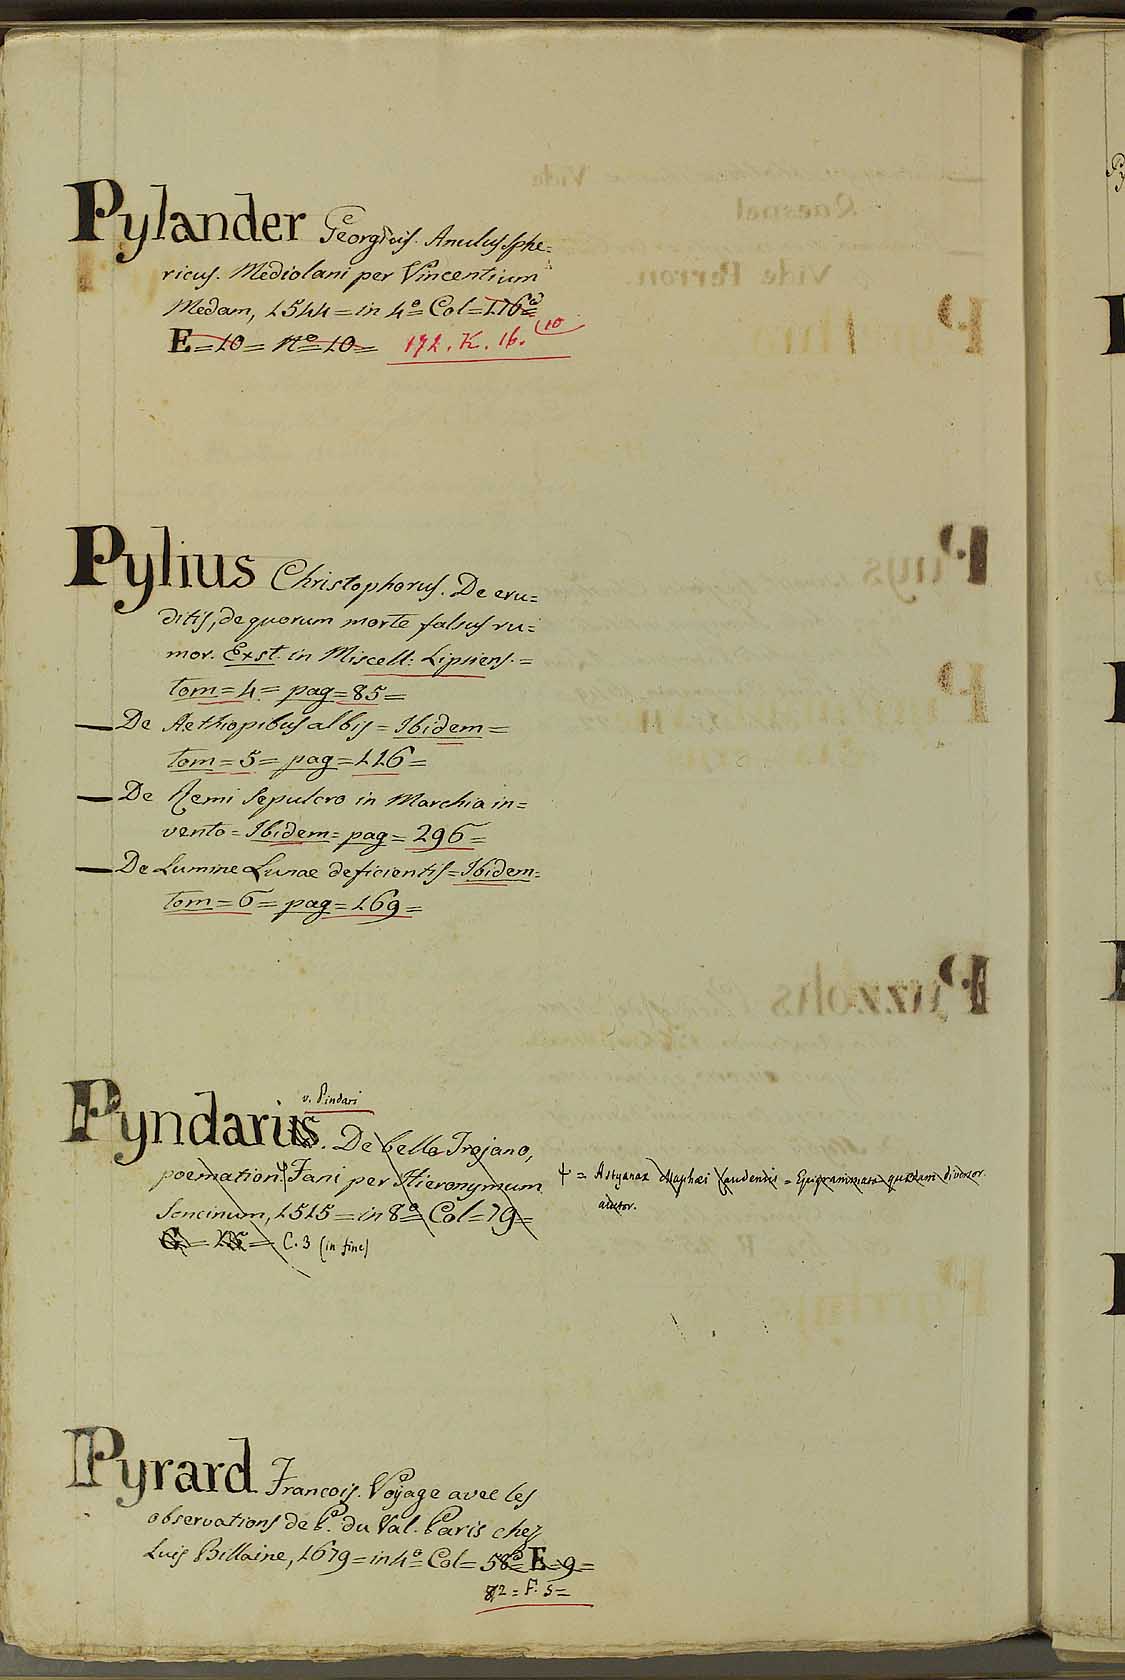 Pylander Georgius. Anulus sphe=
ricus. Mediolani per Vincentium
Medam, 1544 = in 4º = Col = 176ª
E = 10 = Nº = 10 = 172. K. 16. (10
Pylius Christophorus. De eru=
ditis, de quorum morte falsus ru=
mor. Exst. in Miscell: Lipsiens. =
tom = 4 = pag = 85 =
— De Aethiopibus albis = Ibidem =
tom = 5 = pag = 116 =
— De Remi Sepulcro in Marchia in=
vento = Ibidem = pag = 296 =
— De Lumine Lunae deficientis = Ibidem =
tom = 6 = pag = 169 =
v. Pindari
Pyndarius. De bello Trojano,
poemation. Fani per Hieronymum
Soncinum, 1515 = in 8º = Col = 79 =
C. 3 (in fine)
Ψ = Astyanax Maphæi Laudensis = Epigrammata quædam diversor.
auctor.
Pyrard Francois. Voyage avec les
observations de P. du Val. Paris chez
Luis Billaine, 1679 = in 4º = Col = 58ª = E = 9 =
82 = F. 5 =